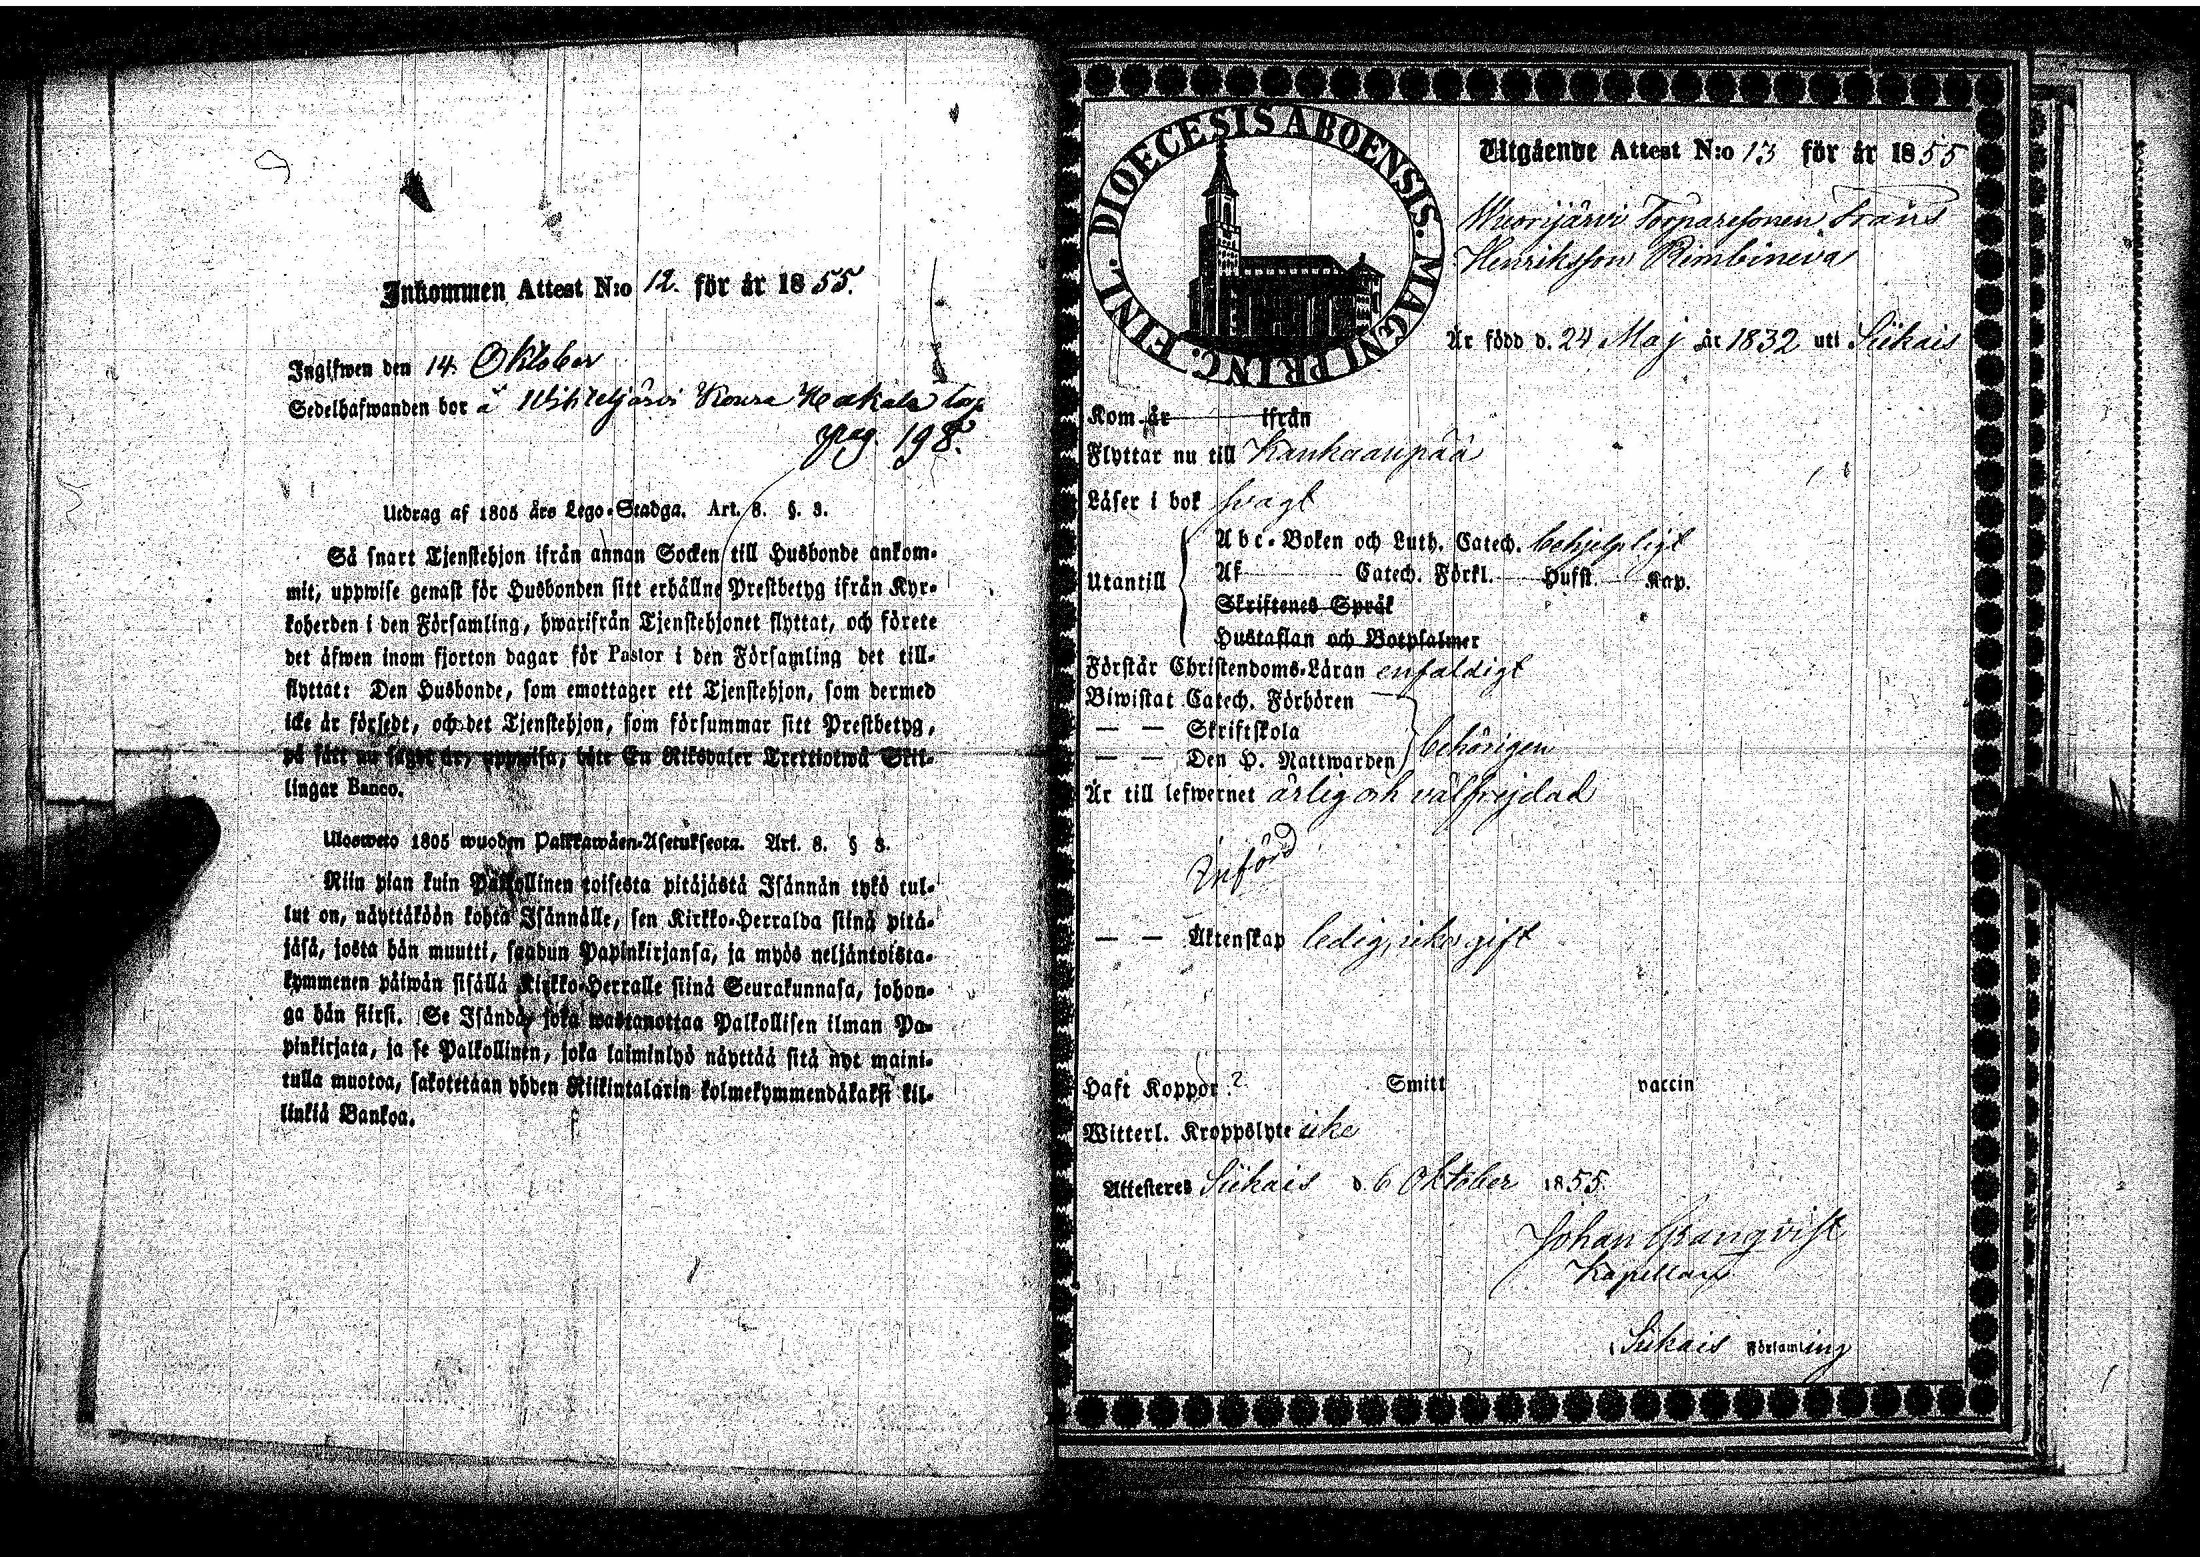 Inkommen Attest N:o 12. för år 1855.
Ingifwen den 14 Oktober
Sedelhafwanden bor å Wihteljärvi Koura Kackala torp
pag. 198.
Utdrag af 1805 års Lego-Stadga. Art. 8. §. 3.
Så snart Tjenstehjon ifrån annan Socken till Husbonde ankom-
mit, uppwise genast för Husbonden sitt erhållne Prestbetyg ifrån Kyr-
koherden i den Församling, hwarifrån Tjenstehjonet flyttat, och förete
det äfwen inom fjorton dagar för Pastor i den Församling det till-
flyttat: Den Husbonde, som emottager ett Tjenstehjon, som dermed
icke är försedt, och det Tjenstehjon, som försummar sitt Prestbetyg,
på sätt nu sagdt är, uppwisa, böte En Riksdaler Trettiotwå Skil-
lingar Banco.
Ulosweto 1805 wuoden Palkkawäen-Asetuksesta. Art. 8. § 3.
Niin pian kuin Palkollinen toisesta pitäjästä Isännän tykö tul-
lut on, näyttäköön kohta Isännälle, sen Kirkko-Herralda siinä pitä-
jäsä, josta hän muutti, saadun Papinkirjansa, ja myös neljäntoista-
kymmenen päiwän sisällä Kirkko-Herralle siinä Seurakunnasa, johon-
ga hän siirsi. Se Isändä, joka wastanottaa Palkollisen ilman Pa-
pinkirjata, ja se Palkollinen, joka laiminlyö näyttää sitä nyt maini-
tulla muotoa, sakotetaan yhden Riikintalarin kolmekymmendäkaksi kil-
linkiä Bankoa.
DIOECESIS ABOENSIS. MAGNI PRINC. FINL.
Utgående Attest N:o 13 för år 1855
Wuorijärvi Torparesonen Frans
Henriksson Rimbineva
Är född d. 24 Maj år 1832 uti Siikais
Kom år ifrån
Flyttar nu till Kankaanpää
Läser i bok svagt
Abc-Boken och Luth. Catech. behjelpligt
Utantill Af Catech. Förkl. Husst. Kap.
Skriftenes Språk
Hustaflan och Botpsalmer
Förstår Christendoms-Läran enfaldigt
Biwistat Catech. Förhören
— — Skriftskola
— — Den H. Nattwarden behörigen
Är till lefwernet ärlig och välfrejdad
Införd
— — Äktenskap ledig, icke gift
Haft Koppor ? Smitt vaccin
Witterl. Kroppslyte icke
Attesteres Siikais d. 6 Oktober 1855.
Johan Granqvist
Kapellan
i Siikais Församling